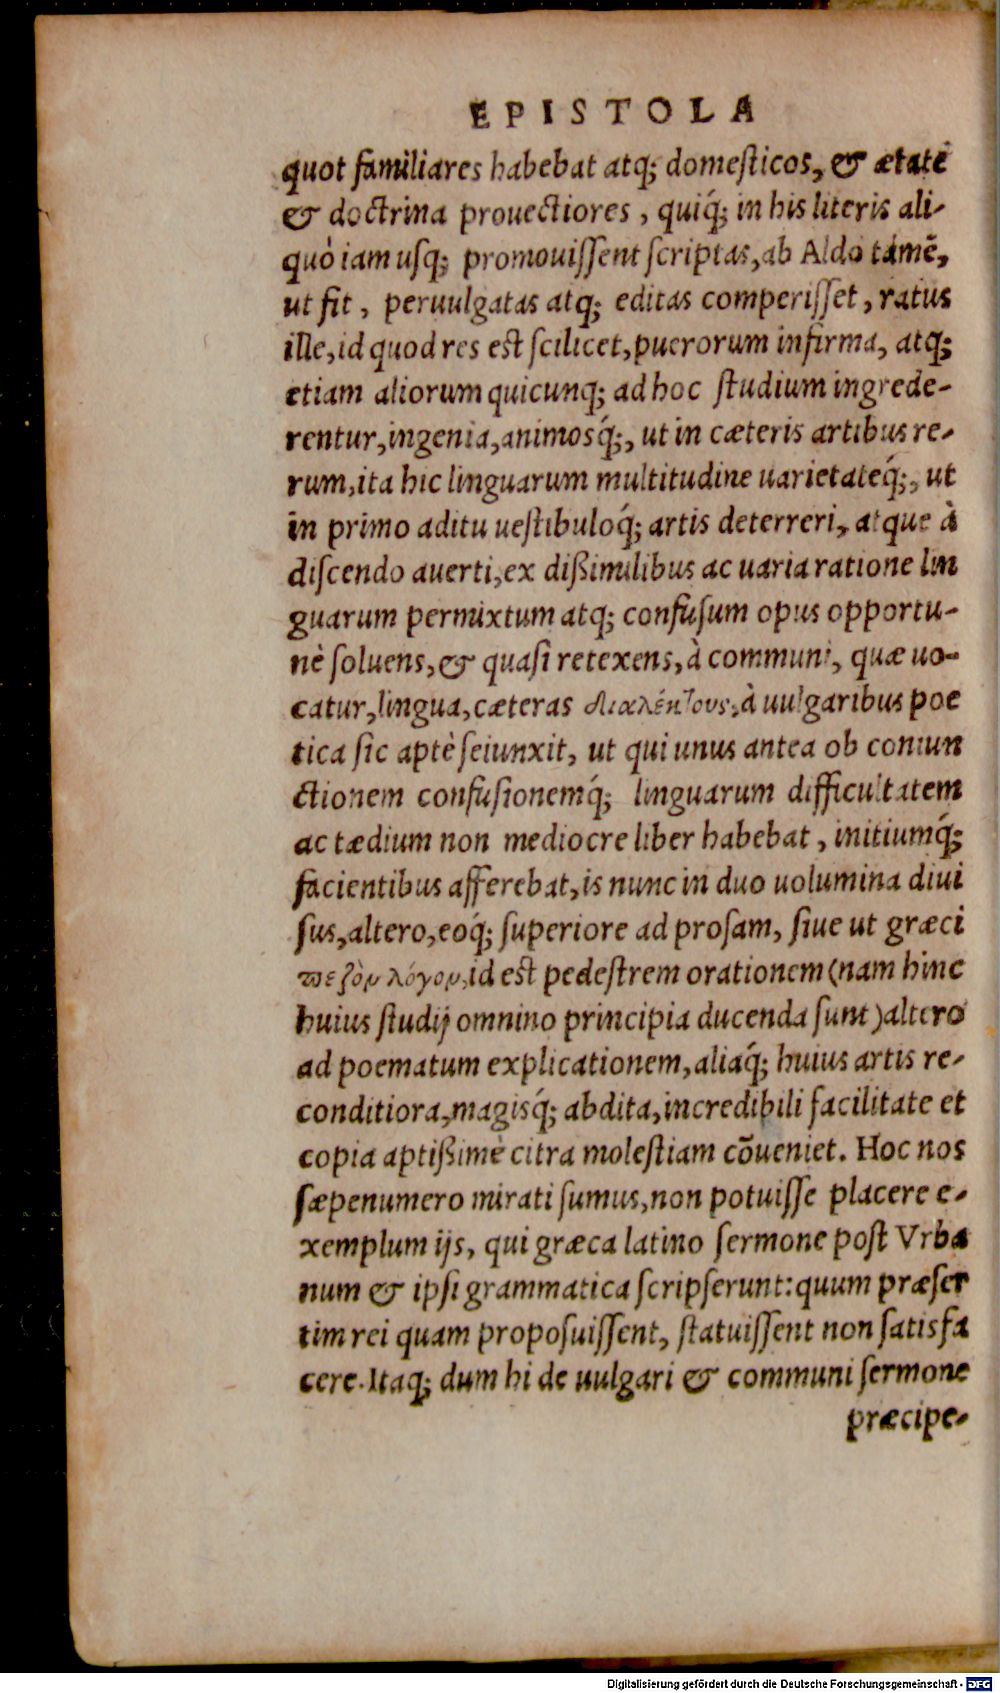 EPISTOLA
quot familiares habebat atq; domeſticos, & ætate
& doctrina prouectiores, quiq́; in his literis ali-
quò iam uſq; promouiſſent ſcriptas, ab Aldo tamē,
ut fit, peruulgatas atq; editas comperiſſet, ratus
ille, id quod res eſt ſcilicet, puerorum infirma, atq;
etiam aliorum quicunq; ad hoc ſtudium ingrede-
rentur, ingenia, animosq́;, ut in cæteris artibus re-
rum, ita hic linguarum multitudine uarietateq́;, ut
in primo aditu ueſtibuloq́; artis deterreri, atque à
diſcendo auerti, ex dißimilibus ac uaria ratione lin
guarum permixtum atq; confuſum opus opportu-
nè ſoluens, & quaſi retexens, à communi, quæ uo-
catur, lingua, cæteras διαλέκτους, à uulgaribus poe
tica ſic aptè ſeiunxit, ut qui unus antea ob coniun
ctionem confuſionemq́; linguarum difficultatem
ac tædium non mediocre liber habebat, initiumq́;
facientibus afferebat, is nunc in duo uolumina diui
ſus, altero, eoq́; ſuperiore ad proſam, ſiue ut græci
πεζὸν λόγον, id eſt pedeſtrem orationem (nam hinc
huius ſtudij omnino principia ducenda ſunt) altero
ad poematum explicationem, aliaq́; huius artis re-
conditiora, magisq́; abdita, incredibili facilitate et
copia aptißimè citra moleſtiam cōueniet. Hoc nos
ſæpenumero mirati ſumus, non potuiſſe placere e-
xemplum ijs, qui græca latino ſermone poſt Vrba
num & ipſi grammatica ſcripſerunt: quum præſer
tim rei quam propoſuiſſent, ſtatuiſſent non ſatisfa
cere. Itaq; dum hi de uulgari & communi ſermone
præcipe-
Digitalisierung gefördert durch die Deutsche Forschungsgemeinschaft - DFG